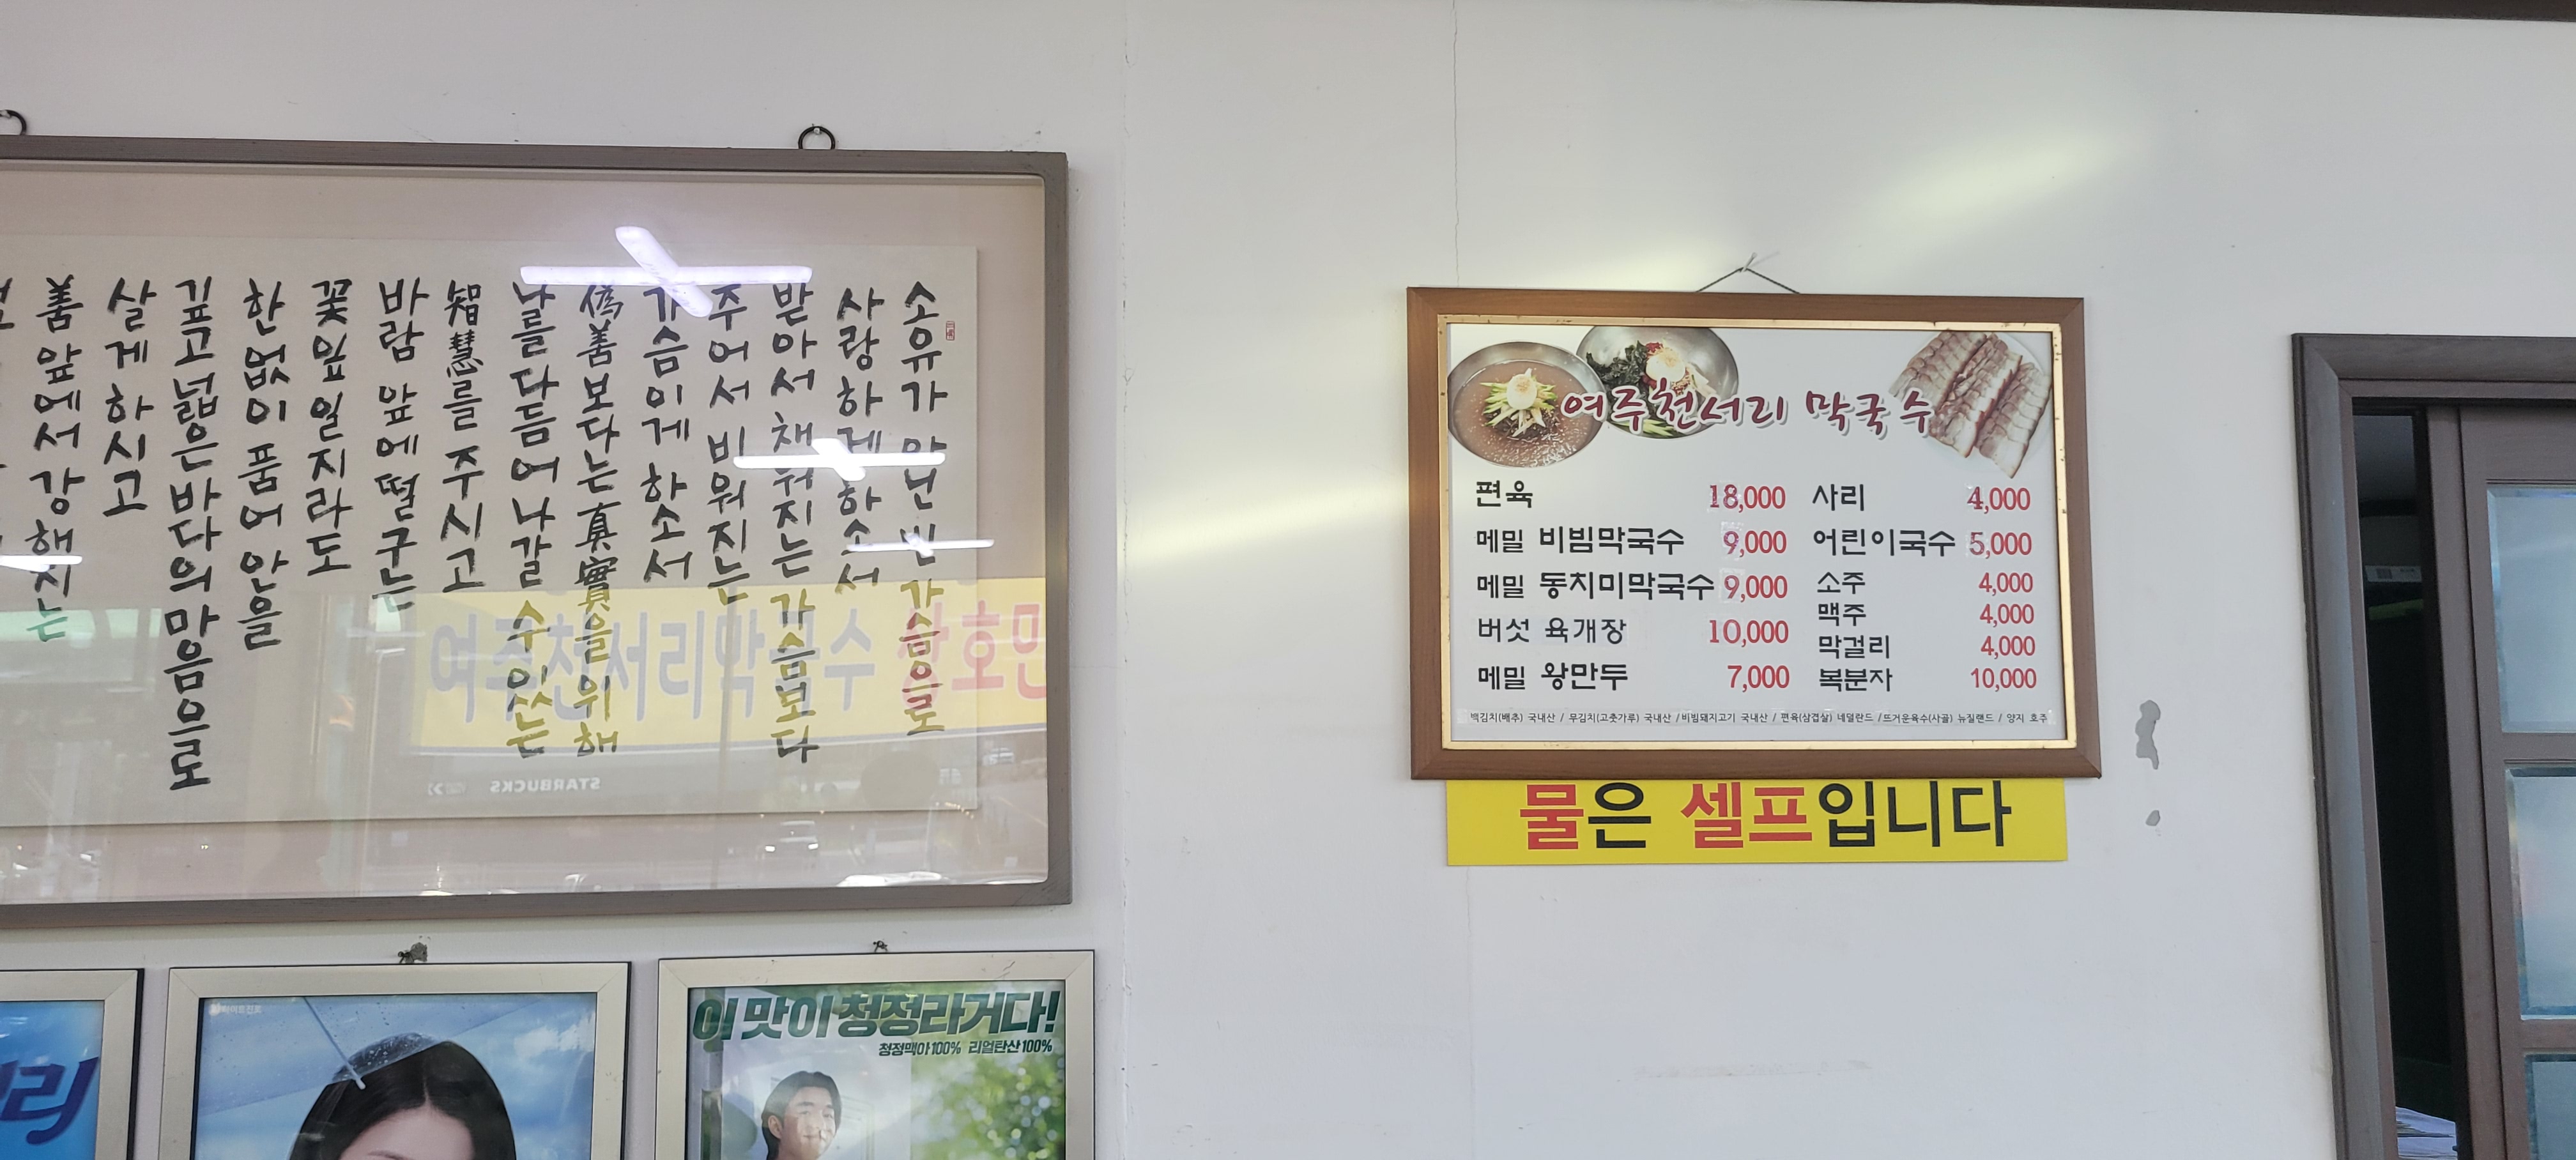 소유가 아닌 빈 가슴으로
사랑하게 하소서
받아서 채워지는 가슴보다
주어서 비워지는
가슴이게 하소서
偽善보다는 真實을 위해
나를 다듬어 나갈 수 있는
智慧를 주시고
바람 앞에 떨구는
꽃잎일지라도
한없이 품어 안을
깊고 넓은 바다의 마음으로
살게 하시고
善 앞에서 강해지는
여주천서리 막국수
편육 18,000
메밀 비빔막국수 9,000
메밀 동치미막국수 9,000
버섯 육개장 10,000
메밀 왕만두 7,000
사리 4,000
어린이국수 5,000
소주 4,000
맥주 4,000
막걸리 4,000
복분자 10,000
백김치(배추) 국내산 / 무김치(고춧가루) 국내산 /비빔돼지고기 국내산 / 편육(삼겹살) 네덜란드 /뜨거운육수(사골) 뉴질랜드 / 양지 호주
물은 셀프입니다
여주천서리막국수
STARBUCKS
하이트진로
이 맛이 청정라거다!
청정맥아100% 리얼탄산100%